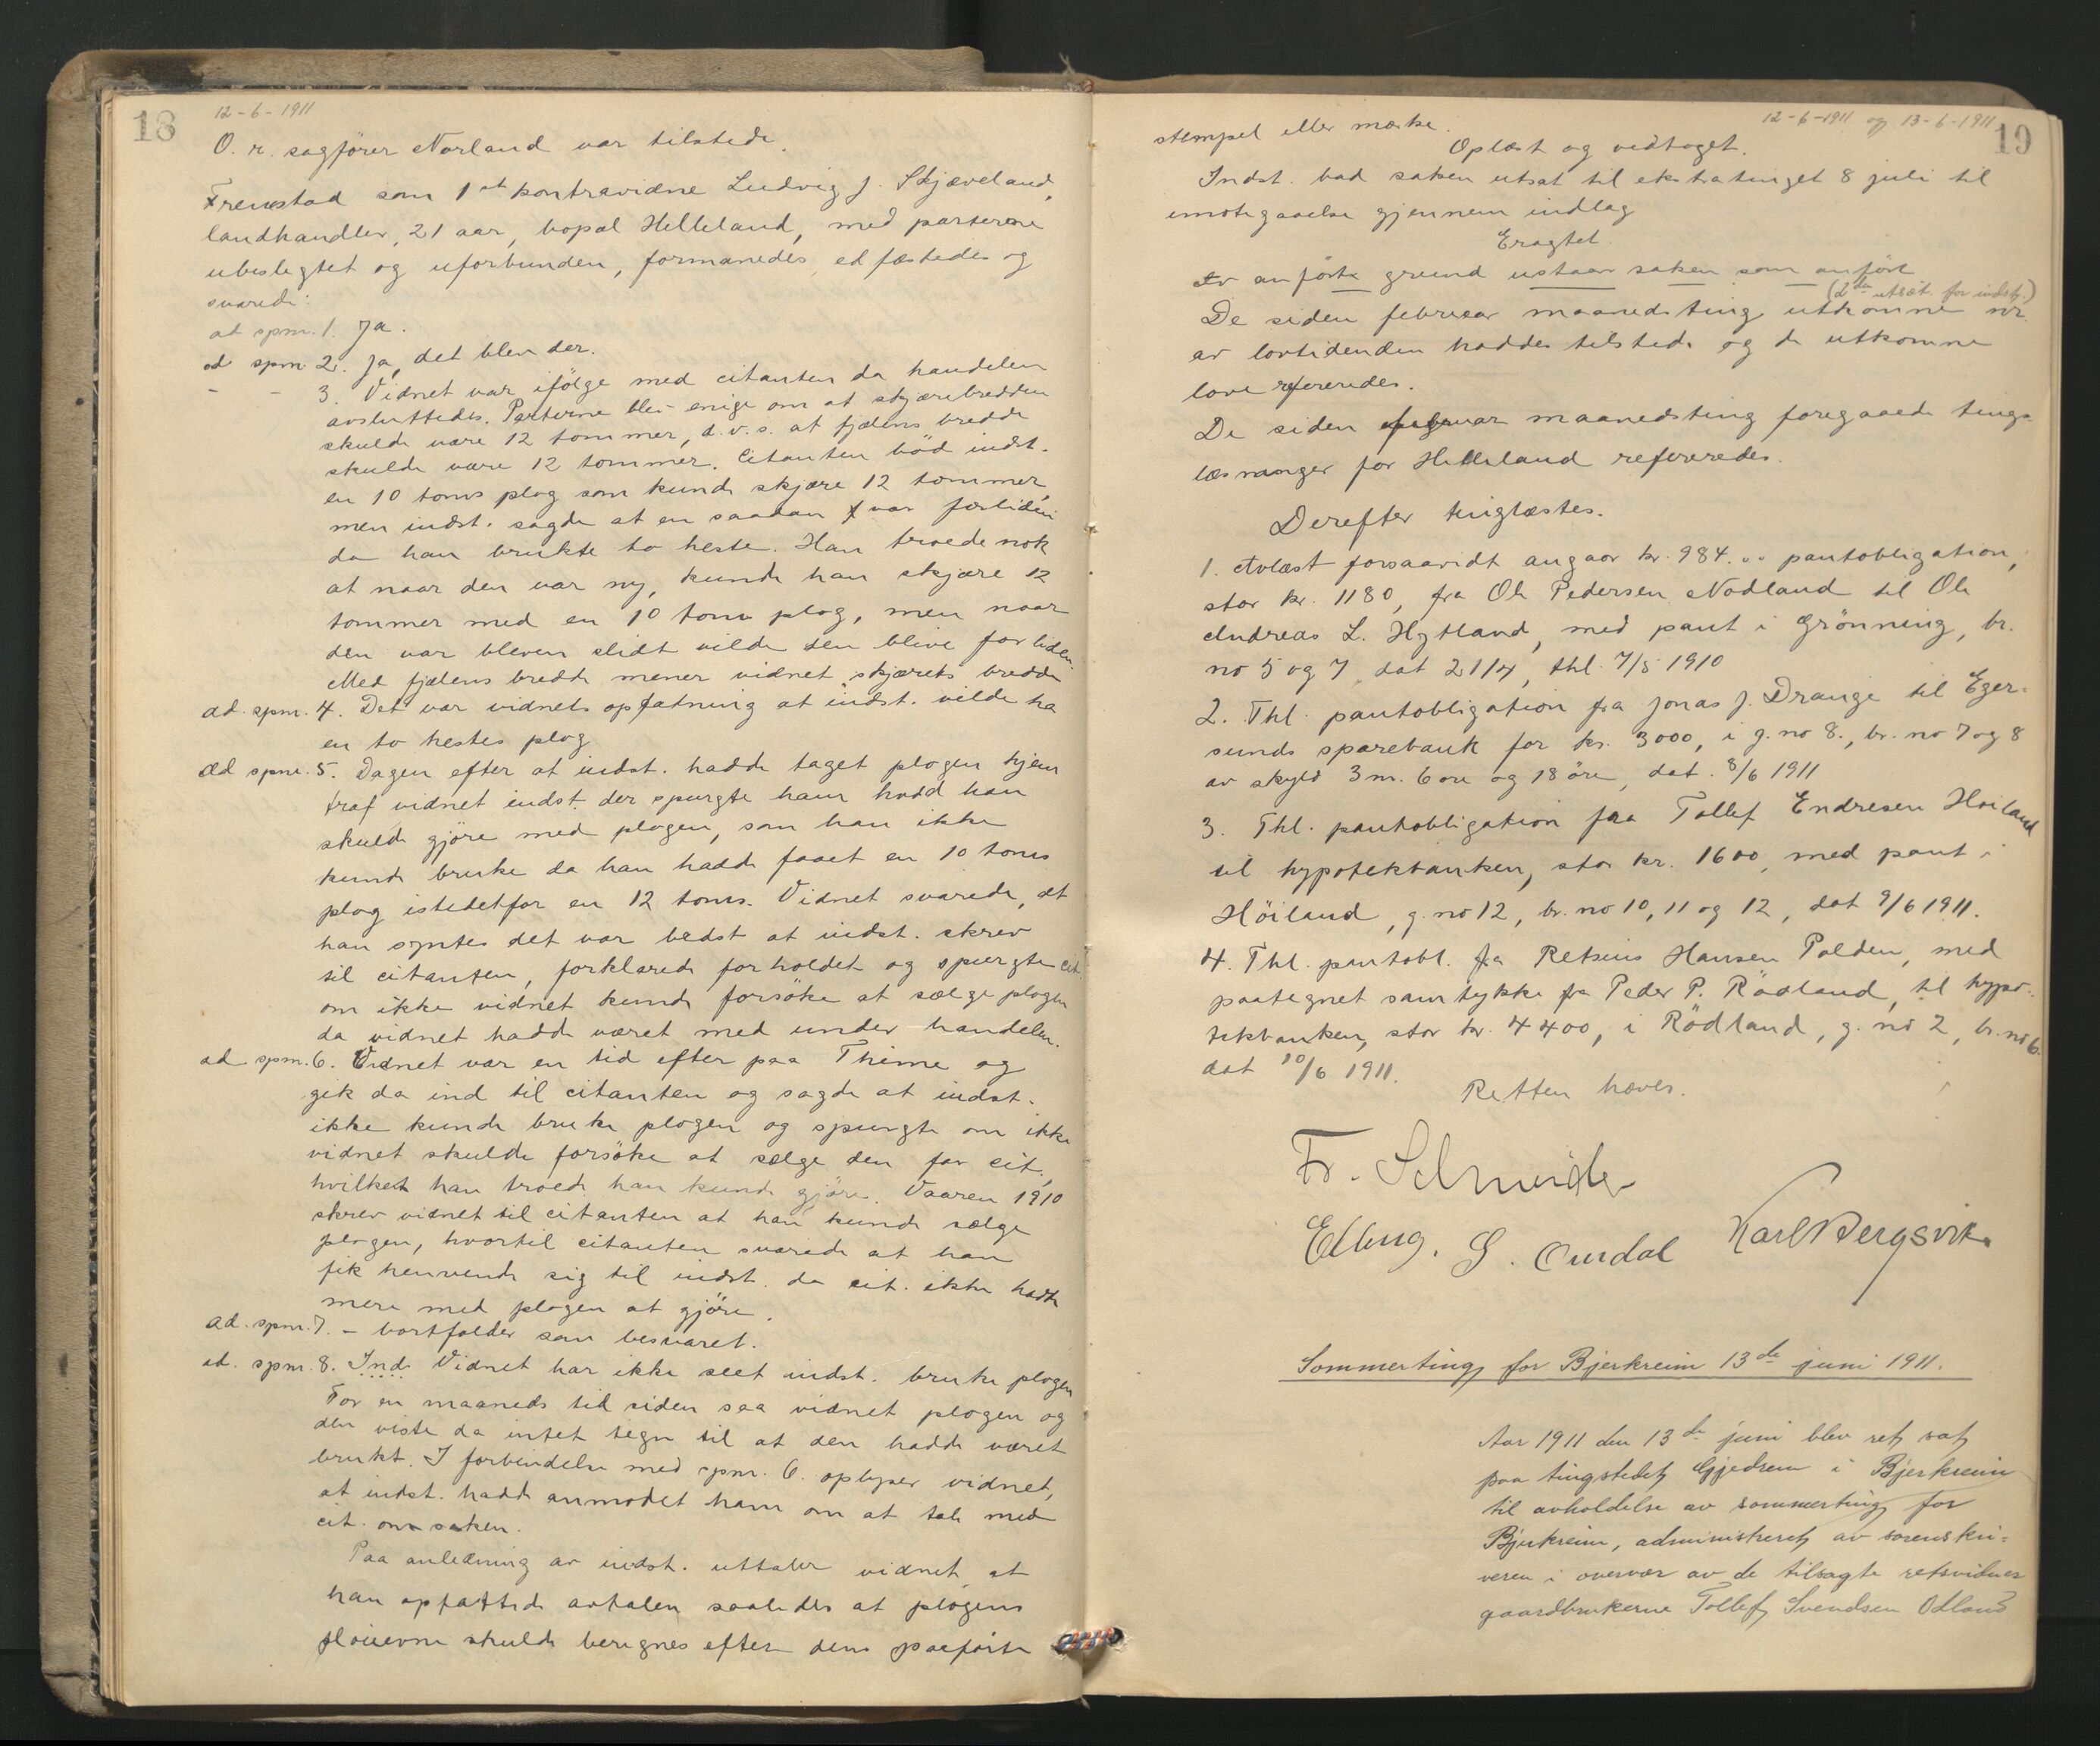 18
12-6-1911
O. r. sagfører Norland var tilstede.
Fremstod som 1st kontravidne Ludvig J. Skjæveland,
landhandler, 21 aar, bopæl Helleland, med parterne
ubeslegtet og uforbunden, formanedes, edfæstedes og
svarede:
ad spm. 1. Ja.
ad spm. 2. Ja, det blev der.
- - 3. Vidnet var ifölge med citanten da handelen
avsluttedes. Parterne blev enige om at skjærebredden
skulde være 12 tommer, d.v.s. at fjælens bredde
skulde være 12 tommer. Citanten böd indst.
en 10 toms plog som kunde skjære 12 tommer,
men indst. sagde at en saadan var forliden
da han brukte to heste. Han troede nok
at naar den var ny, kunde han skjære 12
tommer med en 10 toms plog, men naar
den var bleven slidt vilde den blive for liden.
Med fjælens bredde mener vidnet skjærets bredde
ad. spm. 4. Det var vidnets opfatning at indst. vilde ha
en to hestes plog
ad spm. 5. Dagen efter at indst. hadde taget plogen hjem
traf vidnet indst. der spurgte ham hvad han
skulde gjöre med plogen, som han ikke
kunde bruke da han hadde faaet en 10 toms
plog istedetfor en 12 toms. Vidnet svarede, at
han syntes det var bedst at indst. skrev
til citanten, forklarede forholdet og spurgte cit.
om ikke vidnet kunde forsöke at sælge plogen
da vidnet hadde været med under handelen.
ad spm. 6. Vidnet var en tid efter paa Thime og
gik da ind til citanten og sagde at indst.
ikke kunde bruke plogen og spurgte om ikke
vidnet skulde forsöke at sælge den for cit.,
hvilket han troede han kunde gjöre. Vaaren 1910
skrev vidnet til citanten at han kunde sælge
plogen, hvortil citanten svarede at han
fik henvende sig til indst. da cit. ikke hadde
mere med plogen at gjöre.
ad. spm. 7. - bortfalder som besvaret.
ad. spm. 8. Ind. Vidnet har ikke seet indst. bruke plogen
For en maaneds tid siden saa vidnet plogen og
den viste da intet tegn til at den hadde været
brukt. I forbindelse med spm. 6. oplyser vidnet,
at indst. hadde anmodet ham om at tale med
cit. om saken.
Paa anledning av indst. uttaler vidnet at
han opfattede avtalen saaledes at plogens
ploievne skulde beregnes efter dens paaförte
12-6-1911 og 13-6-1911
19
stempel eller mærke.
Oplæst og vedtaget.
Indst. bad saken utsat til ekstratinget 8 juli til
imotegaaelse gjennem indlæg
Eragtet.
Av anförte grund utstaar saken som anfört
(2den utsæt. for indst.)
De siden februar maanedsting utkomne nr.
av lovtidenden haddes tilstede og de utkomne
love refereredes.
De siden februar maanedsting foregaaede tings-
læsninger for Helleland refereredes.
Derefter tinglæstes.
1. Avlæst forsaavidt angaar kr. 984.00 pantobligation,
stor kr. 1180, fra Ole Pedersen Nodland til Ole
Andreas L. Hytland, med pant i Grönning, br.
no 5 og 7 dat 21/4, thl. 7/5 1910
2. Thl. pantobligation fra Jonas J. Drange til Eger-
sunds sparebank for kr. 3000, i g. no 8., br. no 7 og 8
av skyld 3 m. 6 ore og 18 öre, dat. 8/6 1911
3. Thl. pantobligation fra Tollef Endresen Hoiland
til hypotekbanken, stor kr. 1600, med pant i
Höiland, g. no 12, br. no 10, 11 og 12, dat 9/6 1911.
4. Thl. pantobl. fra Retsius Hansen Polden, med
paategnet samtykke fra Peder P. Rödland, til hypo-
tekbanken, stor kr. 4400, i Rödland, g. no 2, br. no 6.
dat 10/6 1911.
Retten hæves.
Fr. Schneider
Elling. G. Ourdal Karl Bergsvik
Sommerting for Bjerkreim 13de juni 1911.
Aar 1911 den 13de juni blev ret sat
paa tingstedet Gjedrem i Bjerkreim
til avholdelse av sommerting for
Bjerkreim, administreret av sorenskri-
veren i overvær av de tilsagte retsvidner
gaardbrukerne Tollef Svendsen Odland